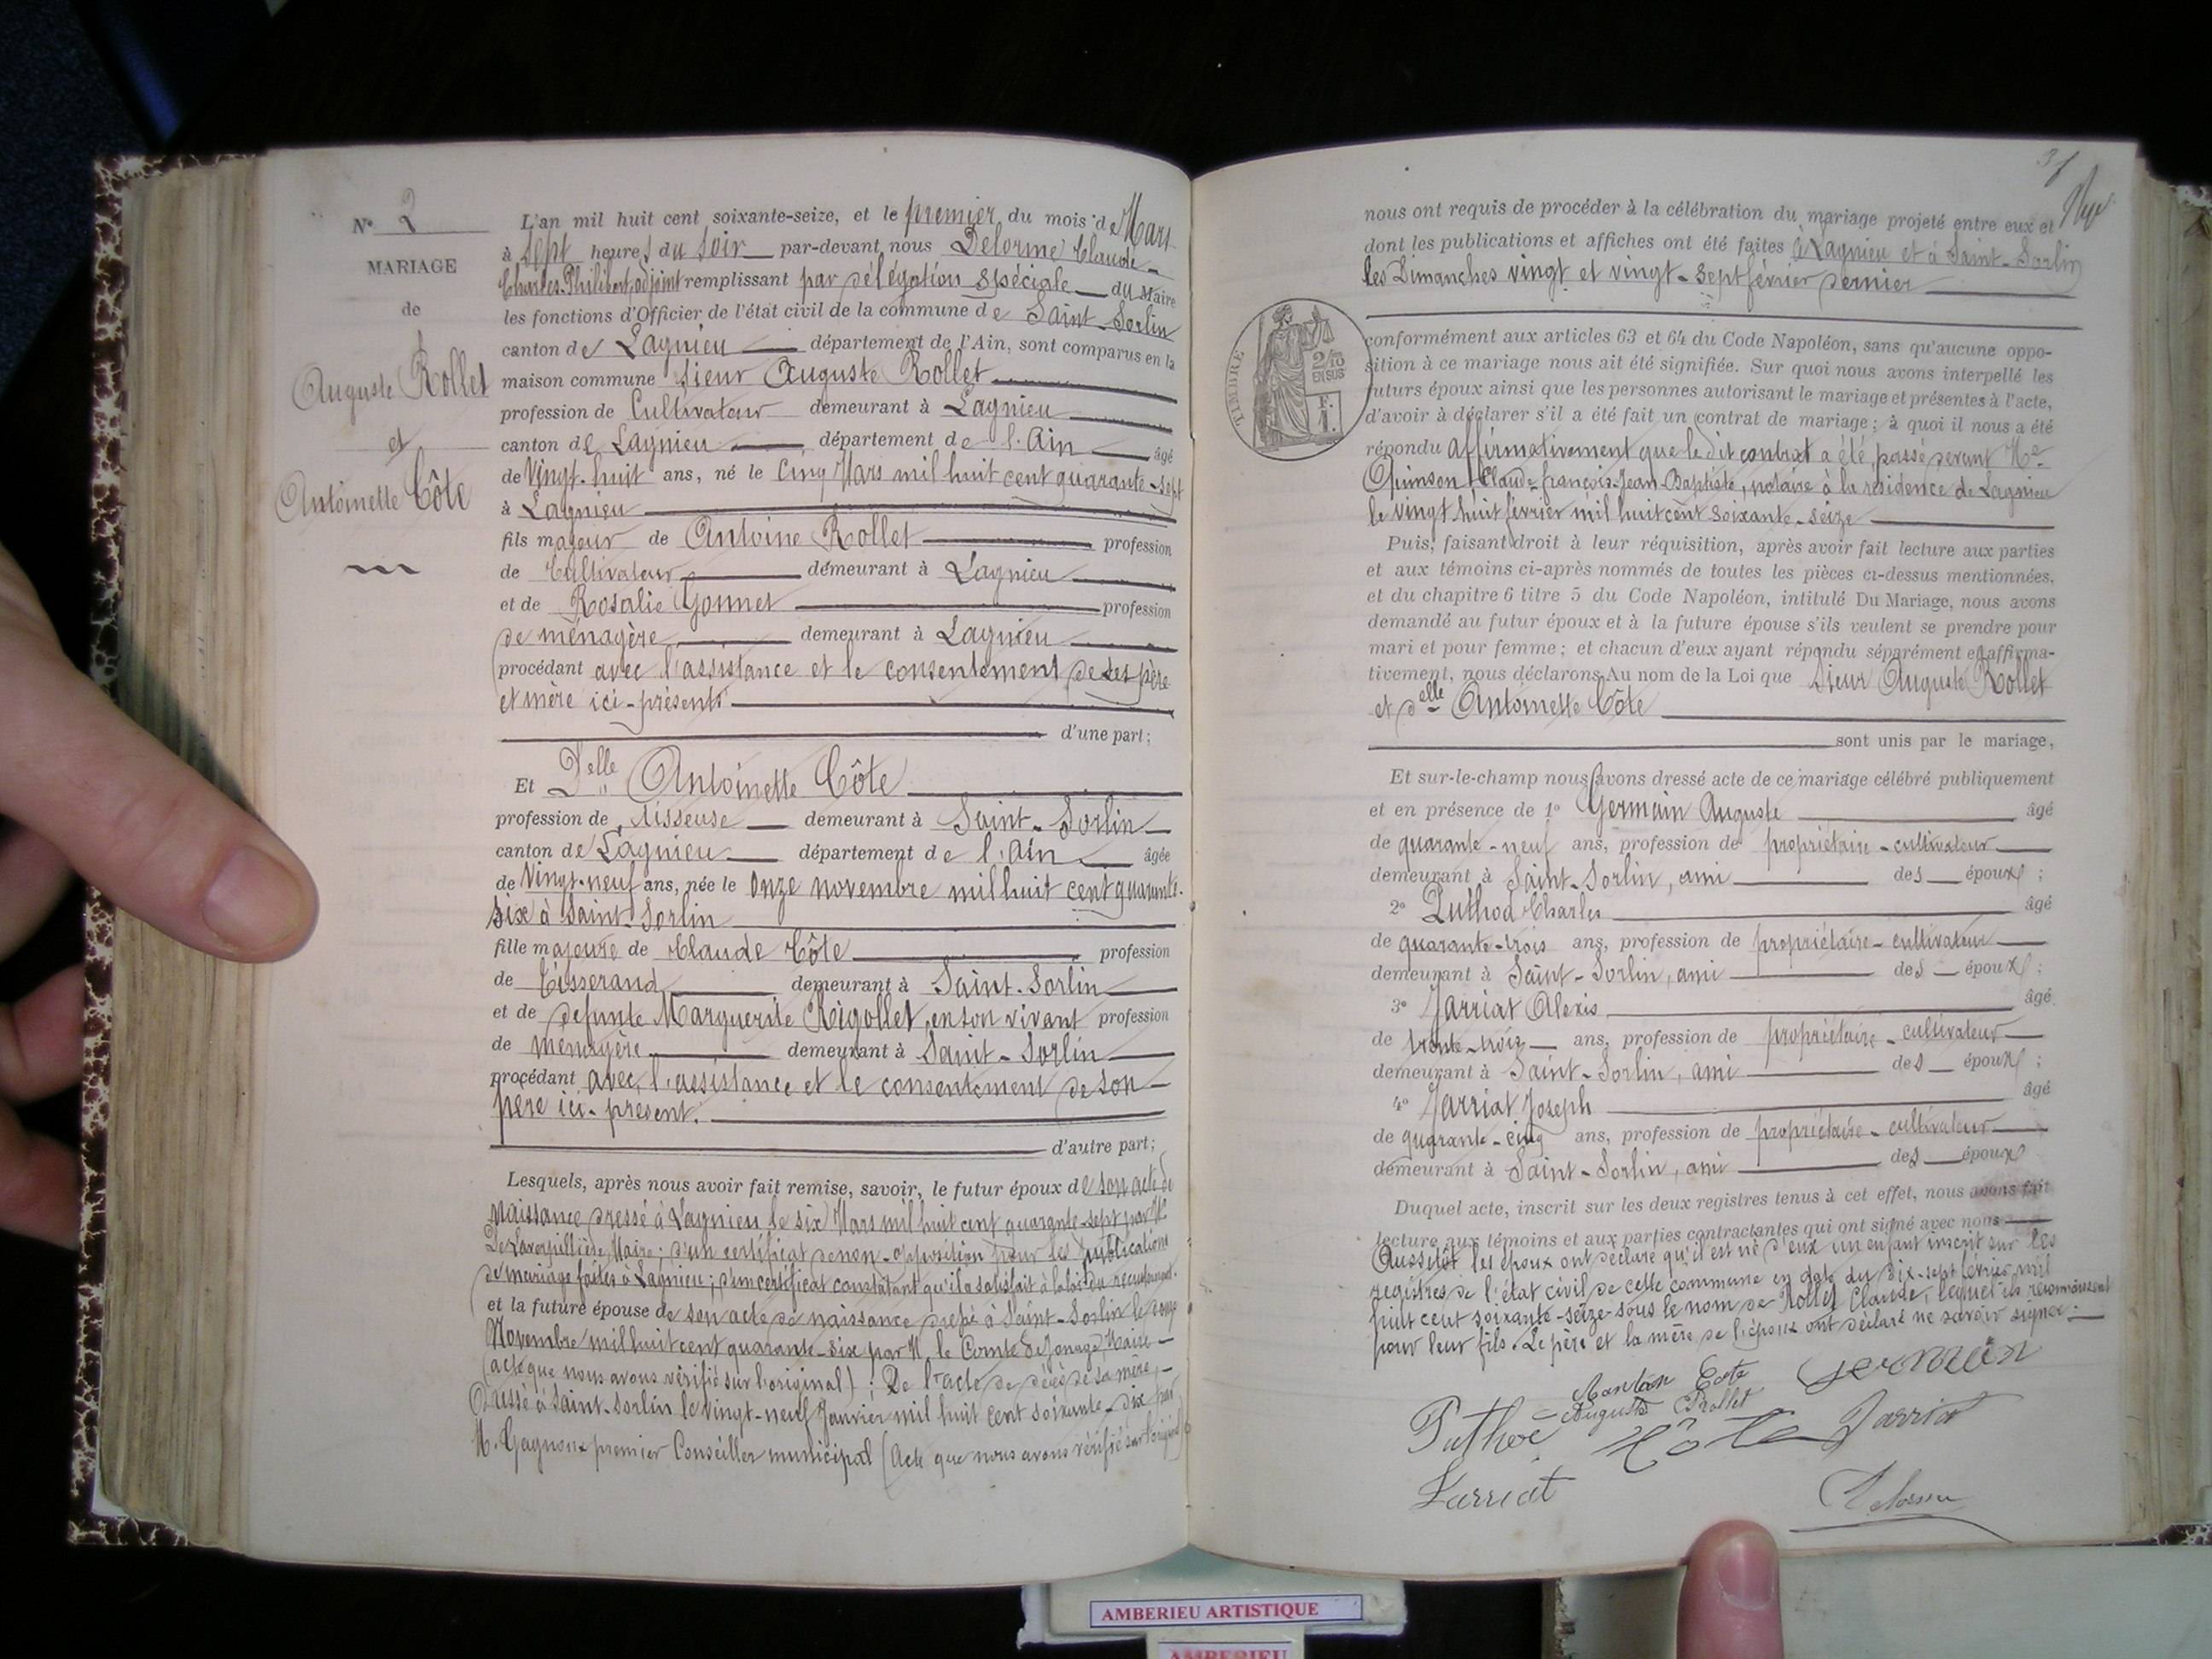 N° 2
MARIAGE
de
Auguste Rollet
et
Antoinette Côte
L'an mil huit cent soixante-seize, et le premier du mois de Mars
à sept heures du soir par-devant nous Delorme Claude-
Charles-Philibert, adjoint remplissant par délégation spéciale du Maire
les fonctions d'Officier de l'état civil de la commune de Saint-Sorlin
canton de Lagnieu département de l'Ain, sont comparus en la
maison commune sieur Auguste Rollet
profession de Cultivateur demeurant à Lagnieu
canton de Lagnieu département de l'Ain âgé
de vingt-huit ans, né le cinq Mars mil huit cent quarante-sept
à Lagnieu
fils majeur de Antoine Rollet profession
de Cultivateur demeurant à Lagnieu
et de Rosalie Gonnet profession
de ménagère demeurant à Lagnieu
procédant avec l'assistance et le consentement de ses père
et mère ici-présents
d'une part;
Et Delle Antoinette Côte
profession de tisseuse demeurant à Saint-Sorlin
canton de Lagnieu département de l'Ain âgée
de vingt-neuf ans, née le onze novembre mil huit cent quarante-
six à Saint-Sorlin
fille majeure de Claude Côte profession
de Tisserand demeurant à Saint-Sorlin
et de defunte Marguerite Rigollet, en son vivant profession
de ménagère demeurant à Saint-Sorlin
procédant avec l'assistance et le consentement de son
père ici-présent.
d'autre part;
Lesquels, après nous avoir fait remise, savoir, le futur époux de son acte de
naissance dressé à Lagnieu le six Mars mil huit cent quarante-sept par M.
De Laverpillière, Maire; d'un certificat de non-opposition pour les publications
de mariage faites à Lagnieu; d'un certificat constatant qu'il a satisfait à la loi du recrutement.
et la future épouse de son acte de naissance dressé à Saint-Sorlin le onze
Novembre mil huit cent quarante-six par M. le Comte de Jonage Maire
(acte que nous avons vérifié sur l'original); De l'acte de décès de sa mère,
Dressé à Saint-Sorlin le vingt-neuf Janvier mil huit cent soixante-dix par
M. Gagnoux premier Conseiller municipal (Acte que nous avons vérifié sur l'original)
31
nous ont requis de procéder à la célébration du mariage projeté entre eux et
dont les publications et affiches ont été faites à Lagnieu et à Saint-Sorlin
les Dimanches vingt et vingt-sept février dernier
TIMBRE
2/10
EN SUS
F.
1.
conformément aux articles 63 et 64 du Code Napoléon, sans qu'aucune oppo-
sition à ce mariage nous ait été signifiée. Sur quoi nous avons interpellé les
futurs époux ainsi que les personnes autorisant le mariage et présentes à l'acte,
d'avoir à déclarer s'il a été fait un contrat de mariage; à quoi il nous a été
répondu affirmativement que le dit contrat a été passé devant Me
Quinson Claude-françois-Jean-Baptiste, notaire à la résidence de Lagnieu
le vingt huit février mil huit cent soixante-seize
Puis, faisant droit à leur réquisition, après avoir fait lecture aux parties
et aux témoins ci-après nommés de toutes les pièces ci-dessus mentionnées,
et du chapitre 6 titre 5 du Code Napoléon, intitulé Du Mariage, nous avons
demandé au futur époux et à la future épouse s'ils veulent se prendre pour
mari et pour femme; et chacun d'eux ayant répondu séparément et affirma-
tivement, nous déclarons Au nom de la Loi que Sieur Auguste Rollet
et Delle Antoinette Côte
sont unis par le mariage,
Et sur-le-champ nous avons dressé acte de ce mariage célébré publiquement
et en présence de 1° Germain Auguste âgé
de quarante-neuf ans, profession de propriétaire-cultivateur
demeurant à Saint-Sorlin, ami des époux;
2° Puthod Charles âgé
de quarante-trois ans, profession de propriétaire-cultivateur
demeurant à Saint-Sorlin, ami des époux;
3° Jarriat Alexis âgé
de trente-trois ans, profession de propriétaire-cultivateur
demeurant à Saint-Sorlin, ami des époux;
4° Jarriat Joseph âgé
de quarante-cinq ans, profession de propriétaire-cultivateur
demeurant à Saint-Sorlin, ami des époux
Duquel acte, inscrit sur les deux registres tenus à cet effet, nous avons fait
lecture aux témoins et aux parties contractantes qui ont signé avec nous
Aussitôt les époux ont déclaré qu'il est né d'eux un enfant inscrit sur les
registres de l'état civil de cette commune en date du dix-sept février mil
huit cent soixante-seize sous le nom de Rollet Claude, lequel ils reconnaissent
pour leur fils. Le père et la mère de l'époux ont déclaré ne savoir signer.
Cote germain
Auguste Rollet
Puthod Côte Jarriat
Jarriat Delorme
AMBERIEU ARTISTIQUE
AMBERIEU